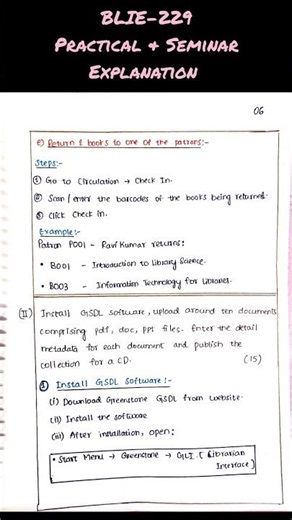 BLIE-229
Practical & Seminar
Explanation
06
e) Return 2 books to one of the patrons:-
Steps:-
① Go to Circulation → Check In.
② Scan/enter the barcodes of the books being returned.
③ Click Check in.
Example:-
Patron P001 - Ravi Kumar returns:
• B001 - Introduction to Library Science.
• B003 - Information Technology for Libraries.
(II) Install GSDL software, upload around ten documents
comprising pdf, doc, PPt files. Enter the detail
metadata for each document and publish the
collection for a CD. (15)
① Install GSDL Software:-
(i) Download Greenstone GSDL from website.
(ii) Install the software
(iii) After installation, open:
• Start Menu → Greenstone → GLI [Librarian
Interface]